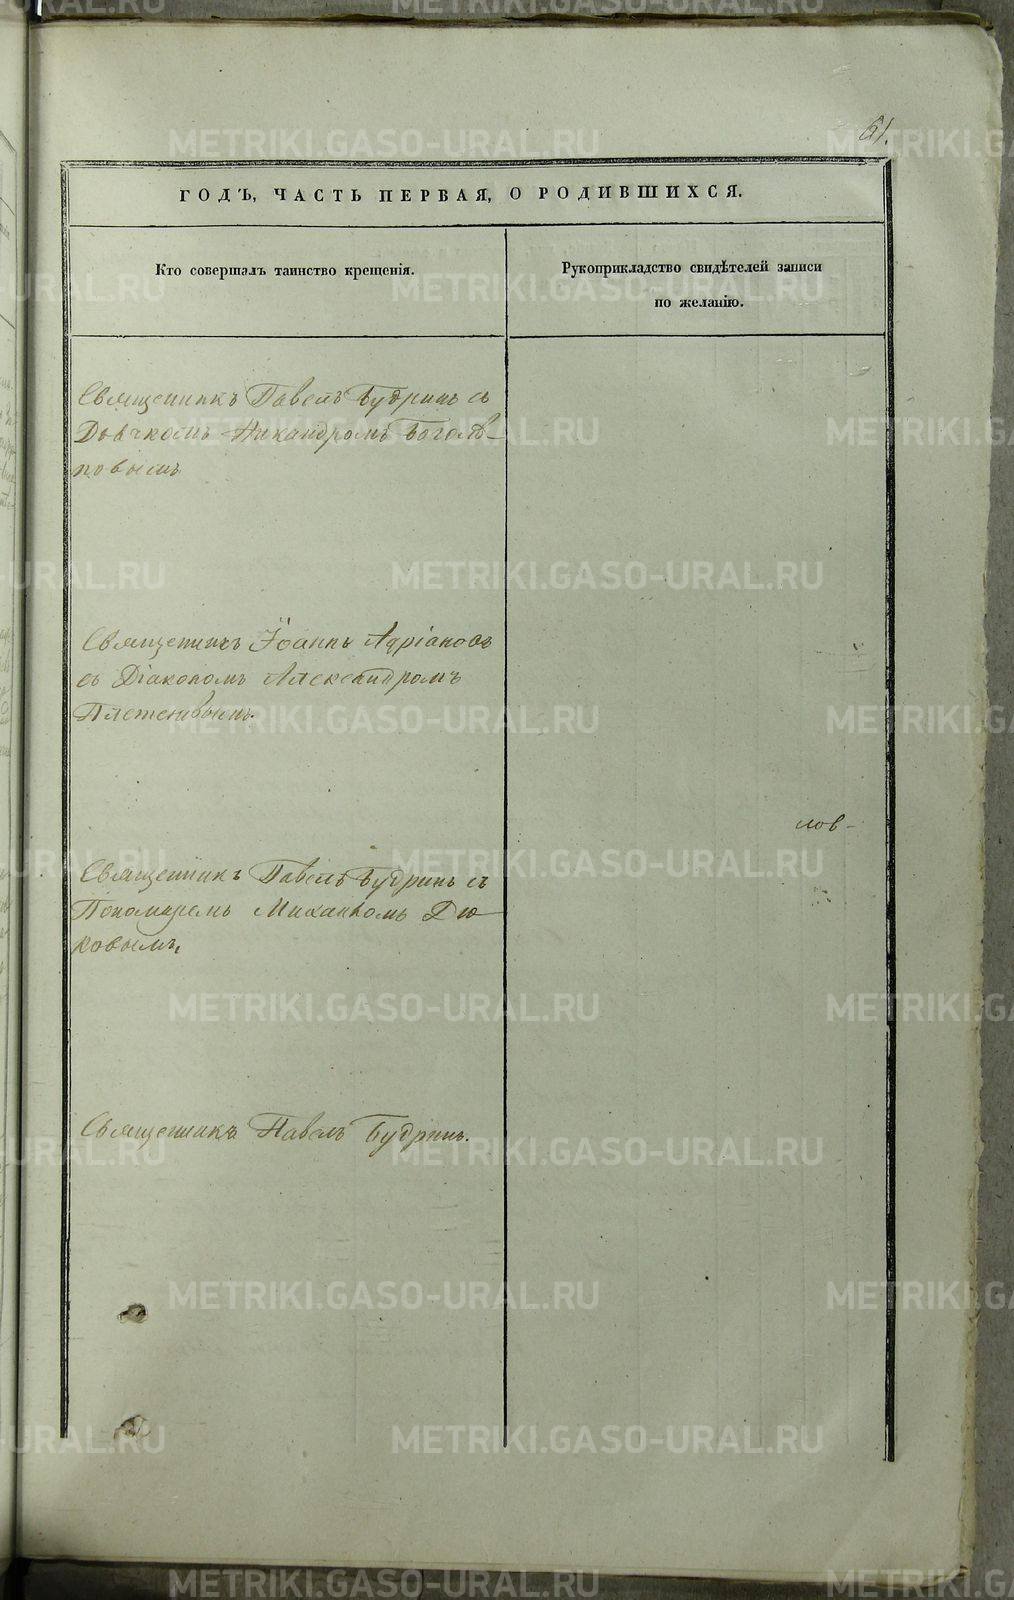 61.
ГОДЪ, ЧАСТЬ ПЕРВАЯ, О РОДИВШИХСЯ.
Кто совершалъ таинство крещенія.
Рукоприкладство свидѣтелей записи
по желанію.
Священникъ Павелъ Будринъ съ
Дьячкомъ Никандромъ Боголѣ-
повымъ
Священникъ Іоаннъ Адріановъ
съ Діакономъ Александромъ
Плетеневымъ.
лов-
Священникъ Павелъ Будринъ съ
Пономаремъ Михаиломъ Дю-
ковымъ.
Священникъ Павелъ Будринъ.
METRIKI.GASO-URAL.RU